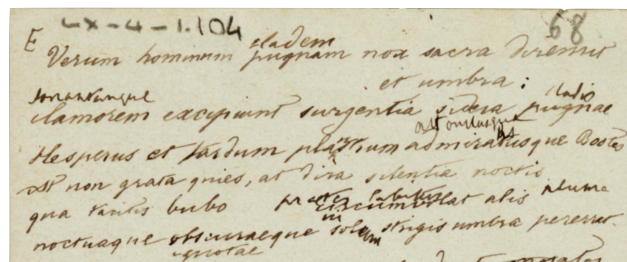 LX-4-1.104
68
E
cladem
Verum hominum pugnam nox sacra diremit
et umbra:
clamorem excipiunt surgentia sidera pugnae
Hesperus et tardum plaustrum admiratusque Bootes
est non grata quies, at dira silentia noctis
qua tantis bubo circumvolat alis
noctuaque obscuraeque strigis umbra pererrat.
ignotae